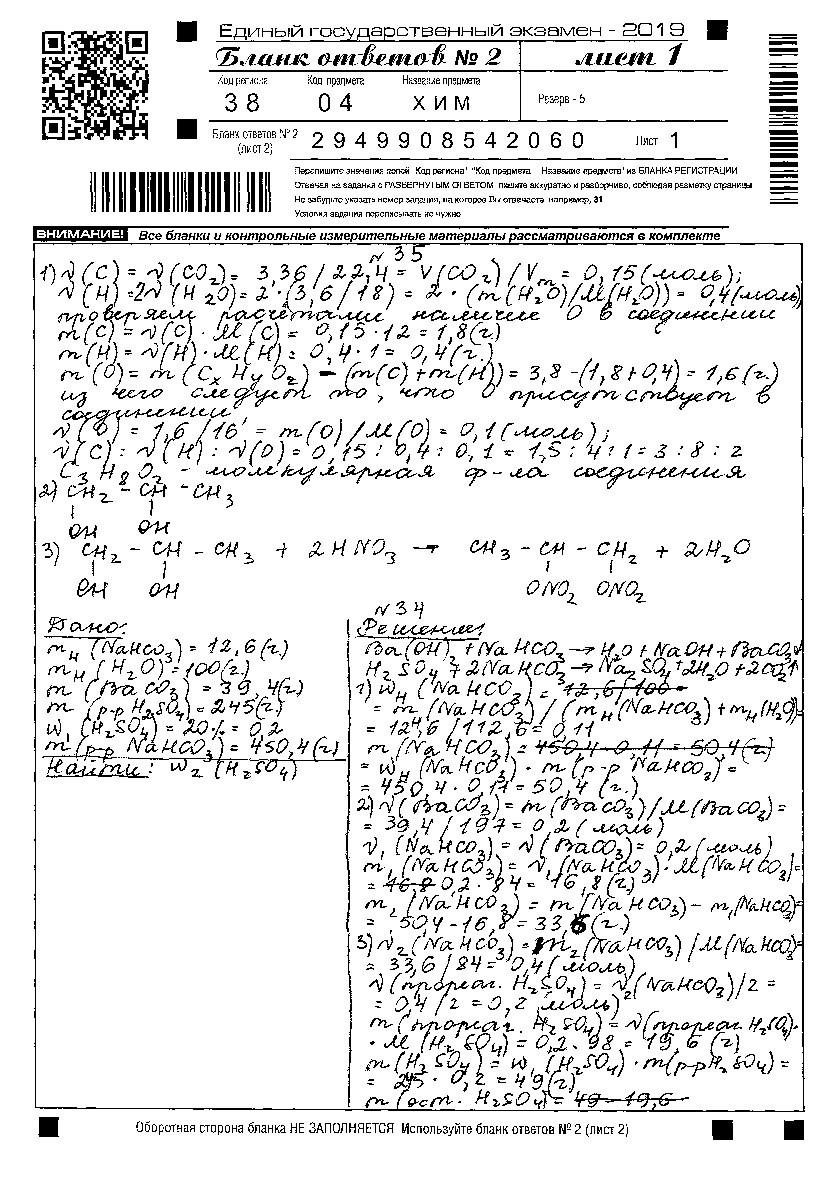 Единый государственный экзамен - 2019
Бланк ответов № 2 лист 1
Код региона Код предмета Название предмета
38 04 ХИМ Резерв - 5
Бланк ответов № 2 (лист 2) 2949908542060 Лист 1
Перепишите значения полей "Код региона" "Код предмета" "Название предмета" из БЛАНКА РЕГИСТРАЦИИ
Отвечая на задания с РАЗВЕРНУТЫМ ОТВЕТОМ пишите аккуратно и разборчиво, соблюдая разметку страницы
Не забудьте указать номер задания, на которое Вы отвечаете например, 31
Условия задания переписывать не нужно
ВНИМАНИЕ! Все бланки и контрольные измерительные материалы рассматриваются в комплекте
N 35
1) ν(C) = ν(CO2) = 3,36/22,4 = V(CO2)/Vm = 0,15(моль);
ν(H) = 2ν(H2O) = 2·(3,6/18) = 2·(m(H2O)/M(H2O)) = 0,4(моль)
проверяем расчётами наличие O в соединении
m(C) = ν(C)·M(C) = 0,15·12 = 1,8(г.)
m(H) = ν(H)·M(H) = 0,4·1 = 0,4(г.)
m(O) = m(CxHyOz) - (m(C)+m(H)) = 3,8-(1,8+0,4) = 1,6(г.)
из чего следует то, что O присутствует в
соединении
ν(O) = 1,6/16 = m(O)/M(O) = 0,1(моль);
ν(C):ν(H):ν(O) = 0,15:0,4:0,1 = 1,5:4:1 = 3:8:2
C3H8O2 - молекулярная ф-ла соединения
2) CH2 - CH - CH3
OH OH
3) CH2 - CH - CH3 + 2HNO3 → CH3 - CH - CH2 + 2H2O
OH OH ONO2 ONO2
N 34
Дано:
mн(NaHCO3) = 12,6(г.)
mн(H2O) = 100(г.)
m(BaCO3) = 39,4(г.)
m(р-р H2SO4) = 245(г.)
w1(H2SO4) = 20% = 0,2
m(р-р NaHCO3) = 450,4(г.)
Найти: w2(H2SO4)
Решение:
Ba(OH)2 + NaHCO3 → H2O + NaOH + BaCO3↓
H2SO4 + 2NaHCO3 → Na2SO4 + 2H2O + 2CO2↑
1) wн(NaHCO3) = 12,6/100 =
= m(NaHCO3)/(mн(NaHCO3) + mн(H2O)) =
= 12,6/112,6 = 0,11
m(NaHCO3) = 450,4·0,11 = 50,4(г)
= wн(NaHCO3)·m(р-р NaHCO3) =
= 450,4·0,11 = 50,4 (г.)
2) ν(BaCO3) = m(BaCO3)/M(BaCO3) =
= 39,4/197 = 0,2(моль)
ν1(NaHCO3) = ν(BaCO3) = 0,2(моль)
m1(NaHCO3) = ν1(NaHCO3)·M(NaHCO3) =
= 16,8 0,2·84 = 16,8(г.)
m2(NaHCO3) = m(NaHCO3) - m1(NaHCO3) =
= 50,4-16,8 = 33,6(г.)
3) ν2(NaHCO3) = m2(NaHCO3)/M(NaHCO3) =
= 33,6/84 = 0,4(моль)
ν(прореаг. H2SO4) = ν2(NaHCO3)/2 =
= 0,4/2 = 0,2(моль)
m(прореаг. H2SO4) = ν(прореаг. H2SO4)·
·M(H2SO4) = 0,2·98 = 19,6(г)
m(H2SO4) = w1(H2SO4)·m(р-р H2SO4) =
= 245·0,2 = 49(г)
m(ост. H2SO4) = 49-19,6
Оборотная сторона бланка НЕ ЗАПОЛНЯЕТСЯ Используйте бланк ответов № 2 (лист 2)